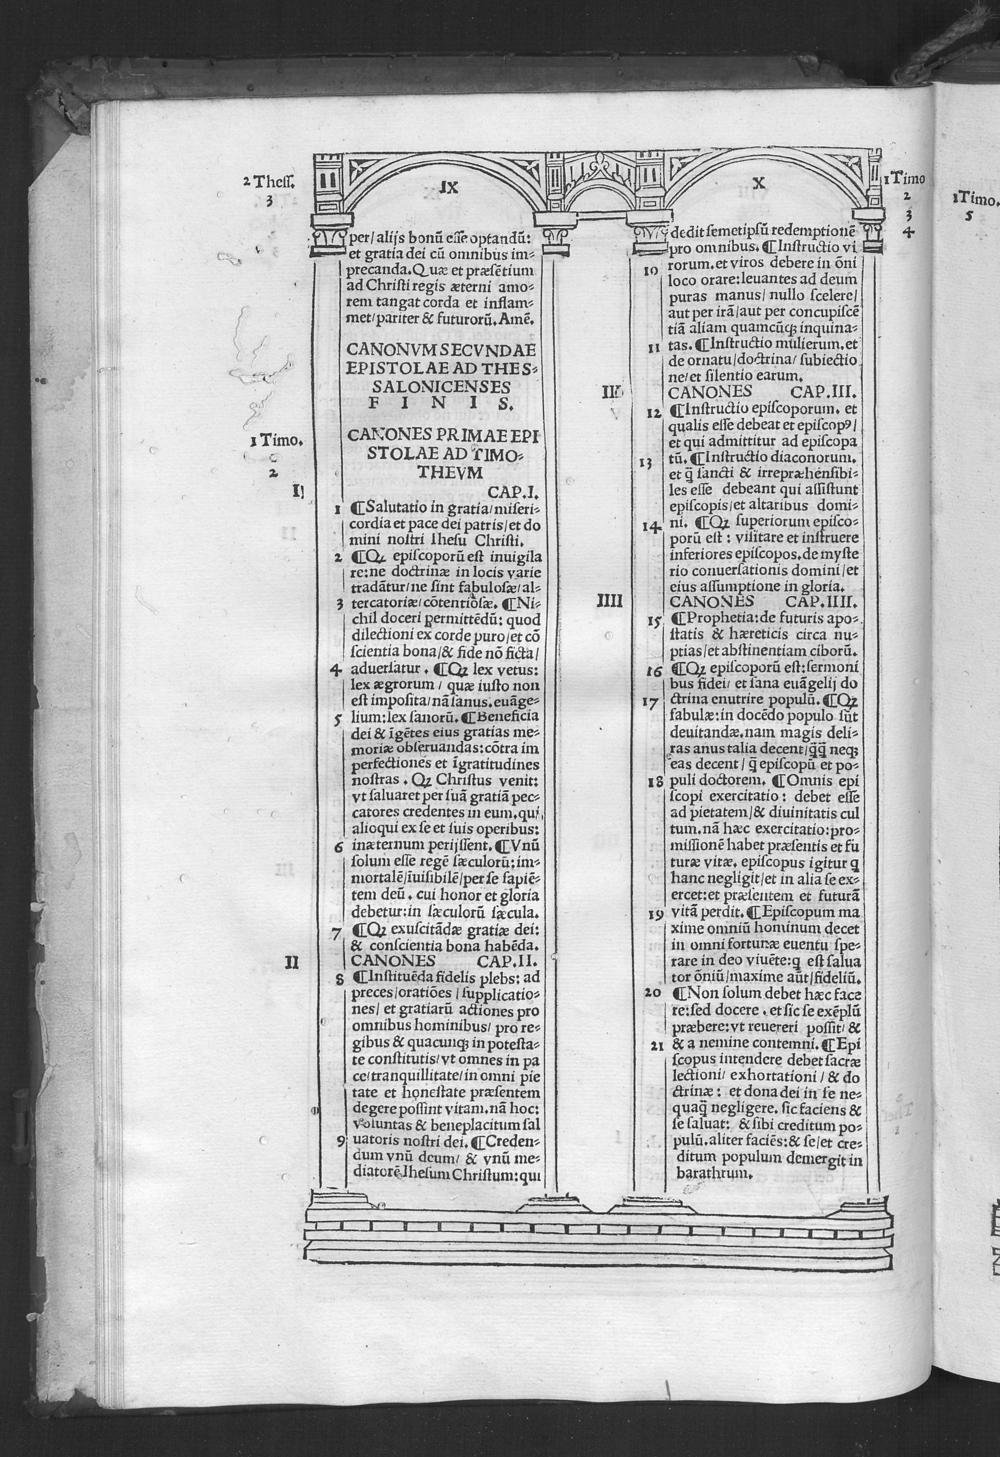 2 Theſſ.
3
IX
per/ alijs bonū eſſe optandū:
et gratia dei cū omnibus im-
precanda. Quæ et præſētium
ad Chriſti regis æterni amo-
rem tangat corda et inflam-
met/ pariter & futurorū. Amē.
CANONVM SECVNDAE
EPISTOLAE AD THES-
SALONICENSES
F I N I S.
1 Timo.
2
CANONES PRIMAE EPI
STOLAE AD TIMO-
THEVM
I
CAP.I.
1 ¶Salutatio in gratia/ miſeri-
cordia et pace dei patris/ et do
mini noſtri Iheſu Chriſti.
2 ¶Qꝫ epiſcoporū eſt inuigila
re: ne doctrinæ in locis varie
tradātur/ ne ſint fabuloſæ/ al-
3 tercatoriæ/ cōtentioſæ. ¶Ni-
chil doceri ꝑermittēdū: quod
dilectioni ex corde puro/ et cō
ſcientia bona/ & fide nō ficta/
4 aduerſatur. ¶Qꝫ lex vetus:
lex ægrorum/ quæ iuſto non
eſt impoſita/ nā ſanus. euāge-
5 lium: lex ſanorū. ¶Beneficia
dei & īgētes eius gratias me-
moriæ obſeruandas: cōtra im
perfectiones et īgratitudines
noſtras. Qꝫ Chriſtus venit:
vt ſaluaret per ſuā gratiā pec-
catores credentes in eum. qui
alioqui ex ſe et ſuis operibus:
6 inæternum perijſſent. ¶Vnū
ſolum eſſe regē ſæculorū: im-
mortalē/ iuiſibilē/ per ſe ſapiē-
tem deū. cui honor et gloria
debetur: in ſæculorū ſæcula.
7 ¶Qꝫ exuſcitādæ gratiæ dei:
& conſcientia bona habēda.
II
CANONES CAP.II.
8 ¶Inſtituēda fidelis plebs: ad
preces/ oratiōes/ ſupplicatio-
nes/ et gratiarū actiones pro
omnibus hominibus/ pro re-
gibus & quacunqꝫ in poteſta-
te conſtitutis/ vt omnes in pa
ce/ tranquillitate/ in omni pie
tate et honeſtate præſentem
degere poſſint vitam. nā hoc:
voluntas & beneplacitum ſal
9 uatoris noſtri dei. ¶Creden-
dum vnū deum/ & vnū me-
diatorē Iheſum Chriſtum: qui
X
1 Timo
2
3
4
dedit ſemetipſū redemptionē
pro omnibus. ¶Inſtructio vi
10 rorum. et viros debere in ōni
loco orare: leuantes ad deum
puras manus/ nullo ſcelere/
aut per irā/ aut per concupiſcē
tiā aliam quamcūqꝫ inquina-
11 tas. ¶Inſtructio mulierum. et
de ornatu/ doctrina/ ſubiectio
ne/ et ſilentio earum.
III
CANONES CAP.III.
12 ¶Inſtructio epiſcoporum. et
qualis eſſe debeat et epiſcopꝰ/
et qui admittitur ad epiſcopa
13 tū. ¶Inſtructio diaconorum.
et q̄ ſancti & irrepræhenſibi-
les eſſe debeant qui aſſiſtunt
epiſcopis/ et altaribus domi-
14 ni. ¶Qꝫ ſuperiorum epiſco-
porū eſt: viſitare et inſtruere
inferiores epiſcopos. de myſte
rio conuerſationis domini/ et
eius aſſumptione in gloria.
IIII
CANONES CAP.IIII.
15 ¶Prophetia: de futuris apo-
ſtatis & hæreticis circa nu-
ptias/ et abſtinentiam ciborū.
16 ¶Qꝫ epiſcoporū eſt: ſermoni
bus fidei/ et ſana euāgelij do
17 ctrina enutrire populū. ¶Qꝫ
fabulæ: in docēdo populo ſūt
deuitandæ. nam magis deli-
ras anus talia decent/ q̄q̄ neqꝫ
eas decent/ q̄ epiſcopū et po-
18 puli doctorem. ¶Omnis epi
ſcopi exercitatio: debet eſſe
ad pietatem/ & diuinitatis cul
tum. nā hæc exercitatio: pro-
miſſionē habet præſentis et fu
turæ vitæ. epiſcopus igitur q
hanc negligit/ et in alia ſe ex-
ercet: et præſentem et futurā
19 vitā perdit. ¶Epiſcopum ma
xime omniū hominum decet
in omni fortunæ euentu ſpe-
rare in deo viuēte: q eſt ſalua
tor ōniū/ maxime aūt/ fidelium.
20 ¶Non ſolum debet hæc face
re: ſed docere. et ſic ſe exēplū
præbere: vt reuereri poſſit/ &
21 & a nemine contemni. ¶Epi
ſcopus intendere debet ſacræ
lectioni/ exhortationi/ & do
ctrinæ: et dona dei in ſe ne-
quaq̄ negligere. ſic faciens &
ſe ſaluat: & ſibi creditum po-
pulū. aliter faciēs: & ſe/ et cre-
ditum populum demergit in
barathrum.
1 Timo.
5